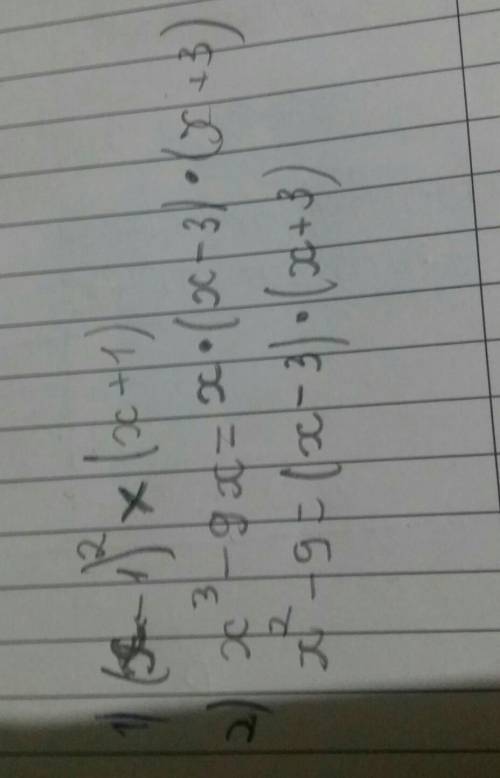 1) (x-1)² × (x+1)
2) x³-9x=x•(x-3)•(x+3)
x²-9=(x-3)•(x+3)